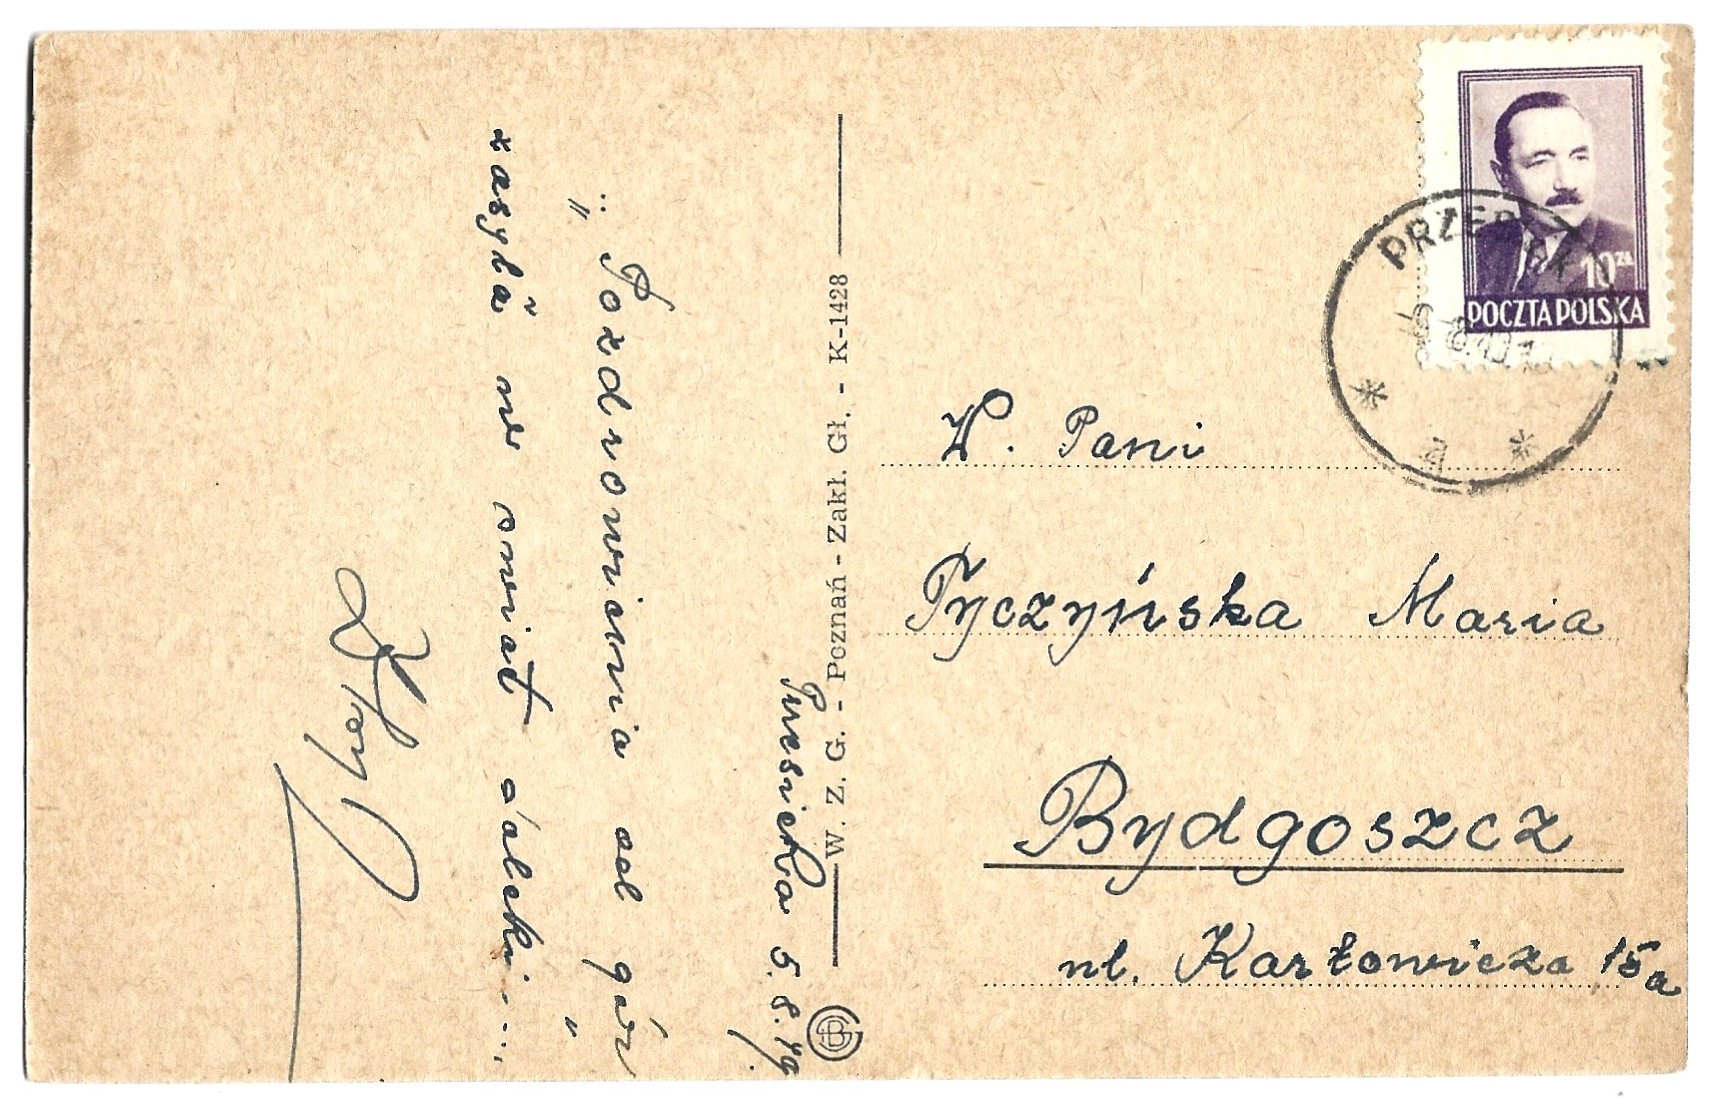 Przesieka 5.8.49.
„Pozdrowienia od gór
zasyła w świat daleki..."
W. Z. G. - Poznań - Zakł. Gł. - K-1428
10 ZŁ
POCZTA POLSKA
W. Pani
Tyczyńska Maria
Bydgoszcz
ul. Karłowicza 15a